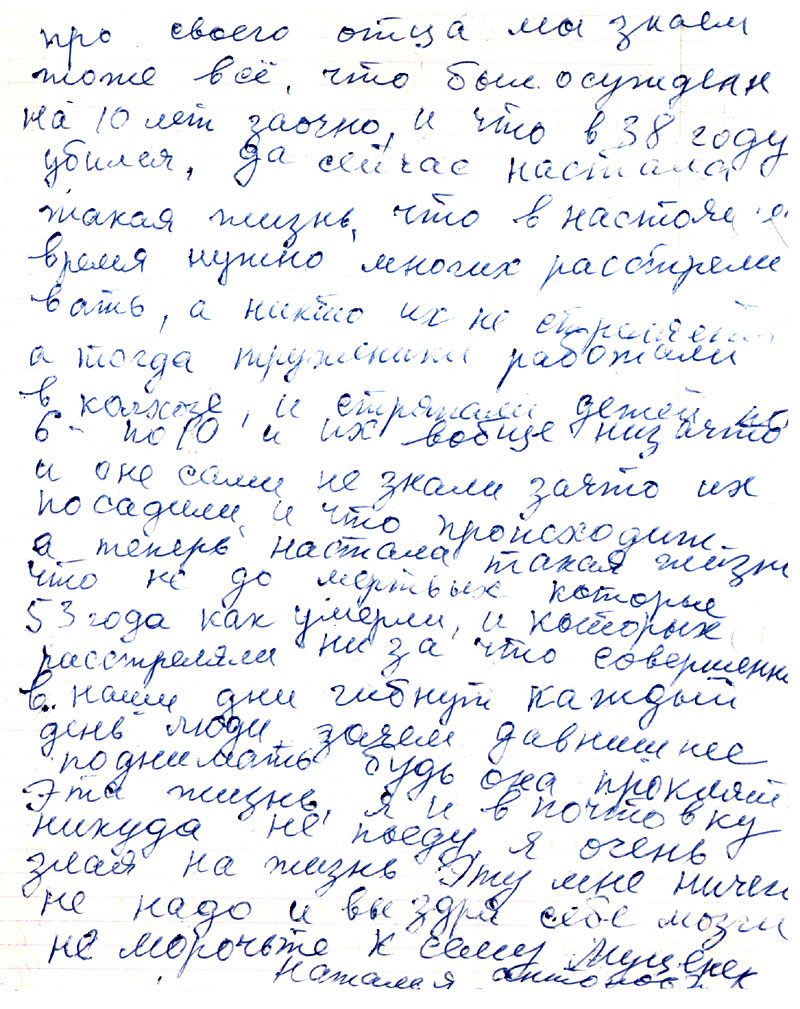 про своего отца мы знаем
тоже всё, что был осужден
на 10 лет заочно, и что в 38 году
убился, да сейчас настала
такая жизнь, что в настоя
время нужно многих расстрели
вать, а никто их не стреляет
а тогда труженики работали
в колхозе, и стряпали детей по
6 - по 10 и их вобще низачто
и оне сами не знали зачто их
посадили, и что происходит
а теперь настала такая жизнь
что не до мертвых которые
53 года как умерли, и которых
расстреляли ни за что совершенно
в наши дни гибнут каждый
день люди, зачем давнишнее
поднимать будь она проклят
Эта жизнь, я и в почтовку
никуда не поеду, я очень
злая на жизнь Эту мне ничег
не надо и вы здря себе мозги
не морочьте к сему
Наталья